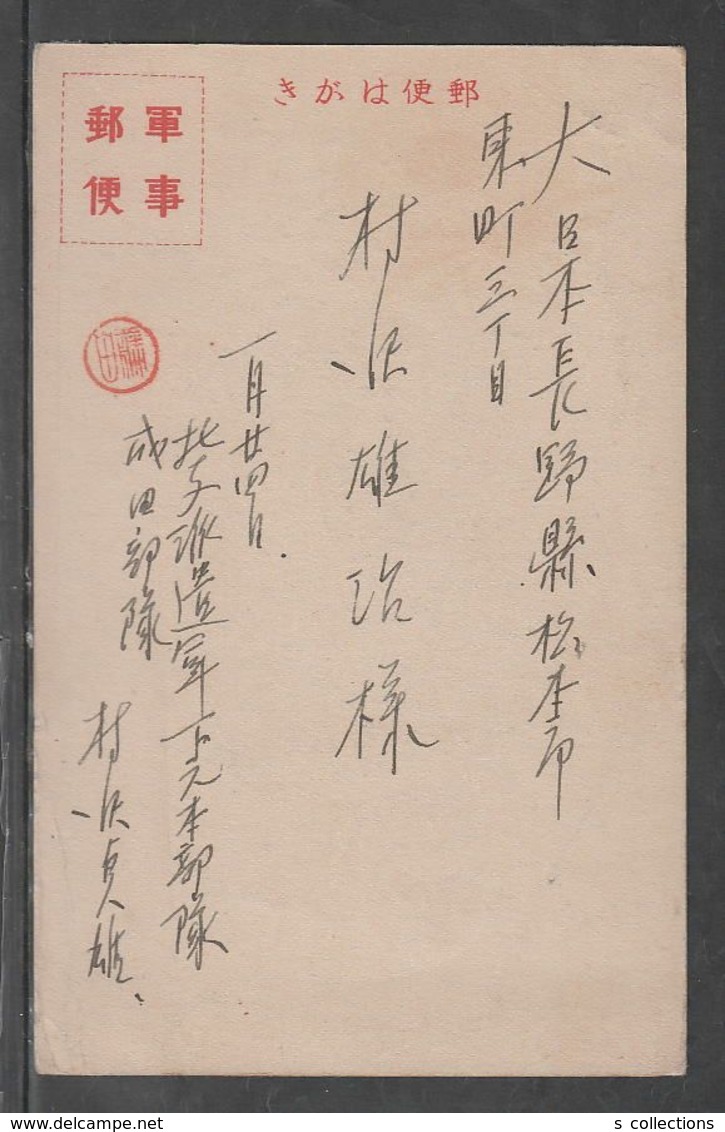 きがは便郵
軍事
郵便
大日本長野縣松本市
東町三丁目
村沢雄治様
一月廿四日
北支派遣軍下元本部隊
成田部隊
村沢貞雄
s collections